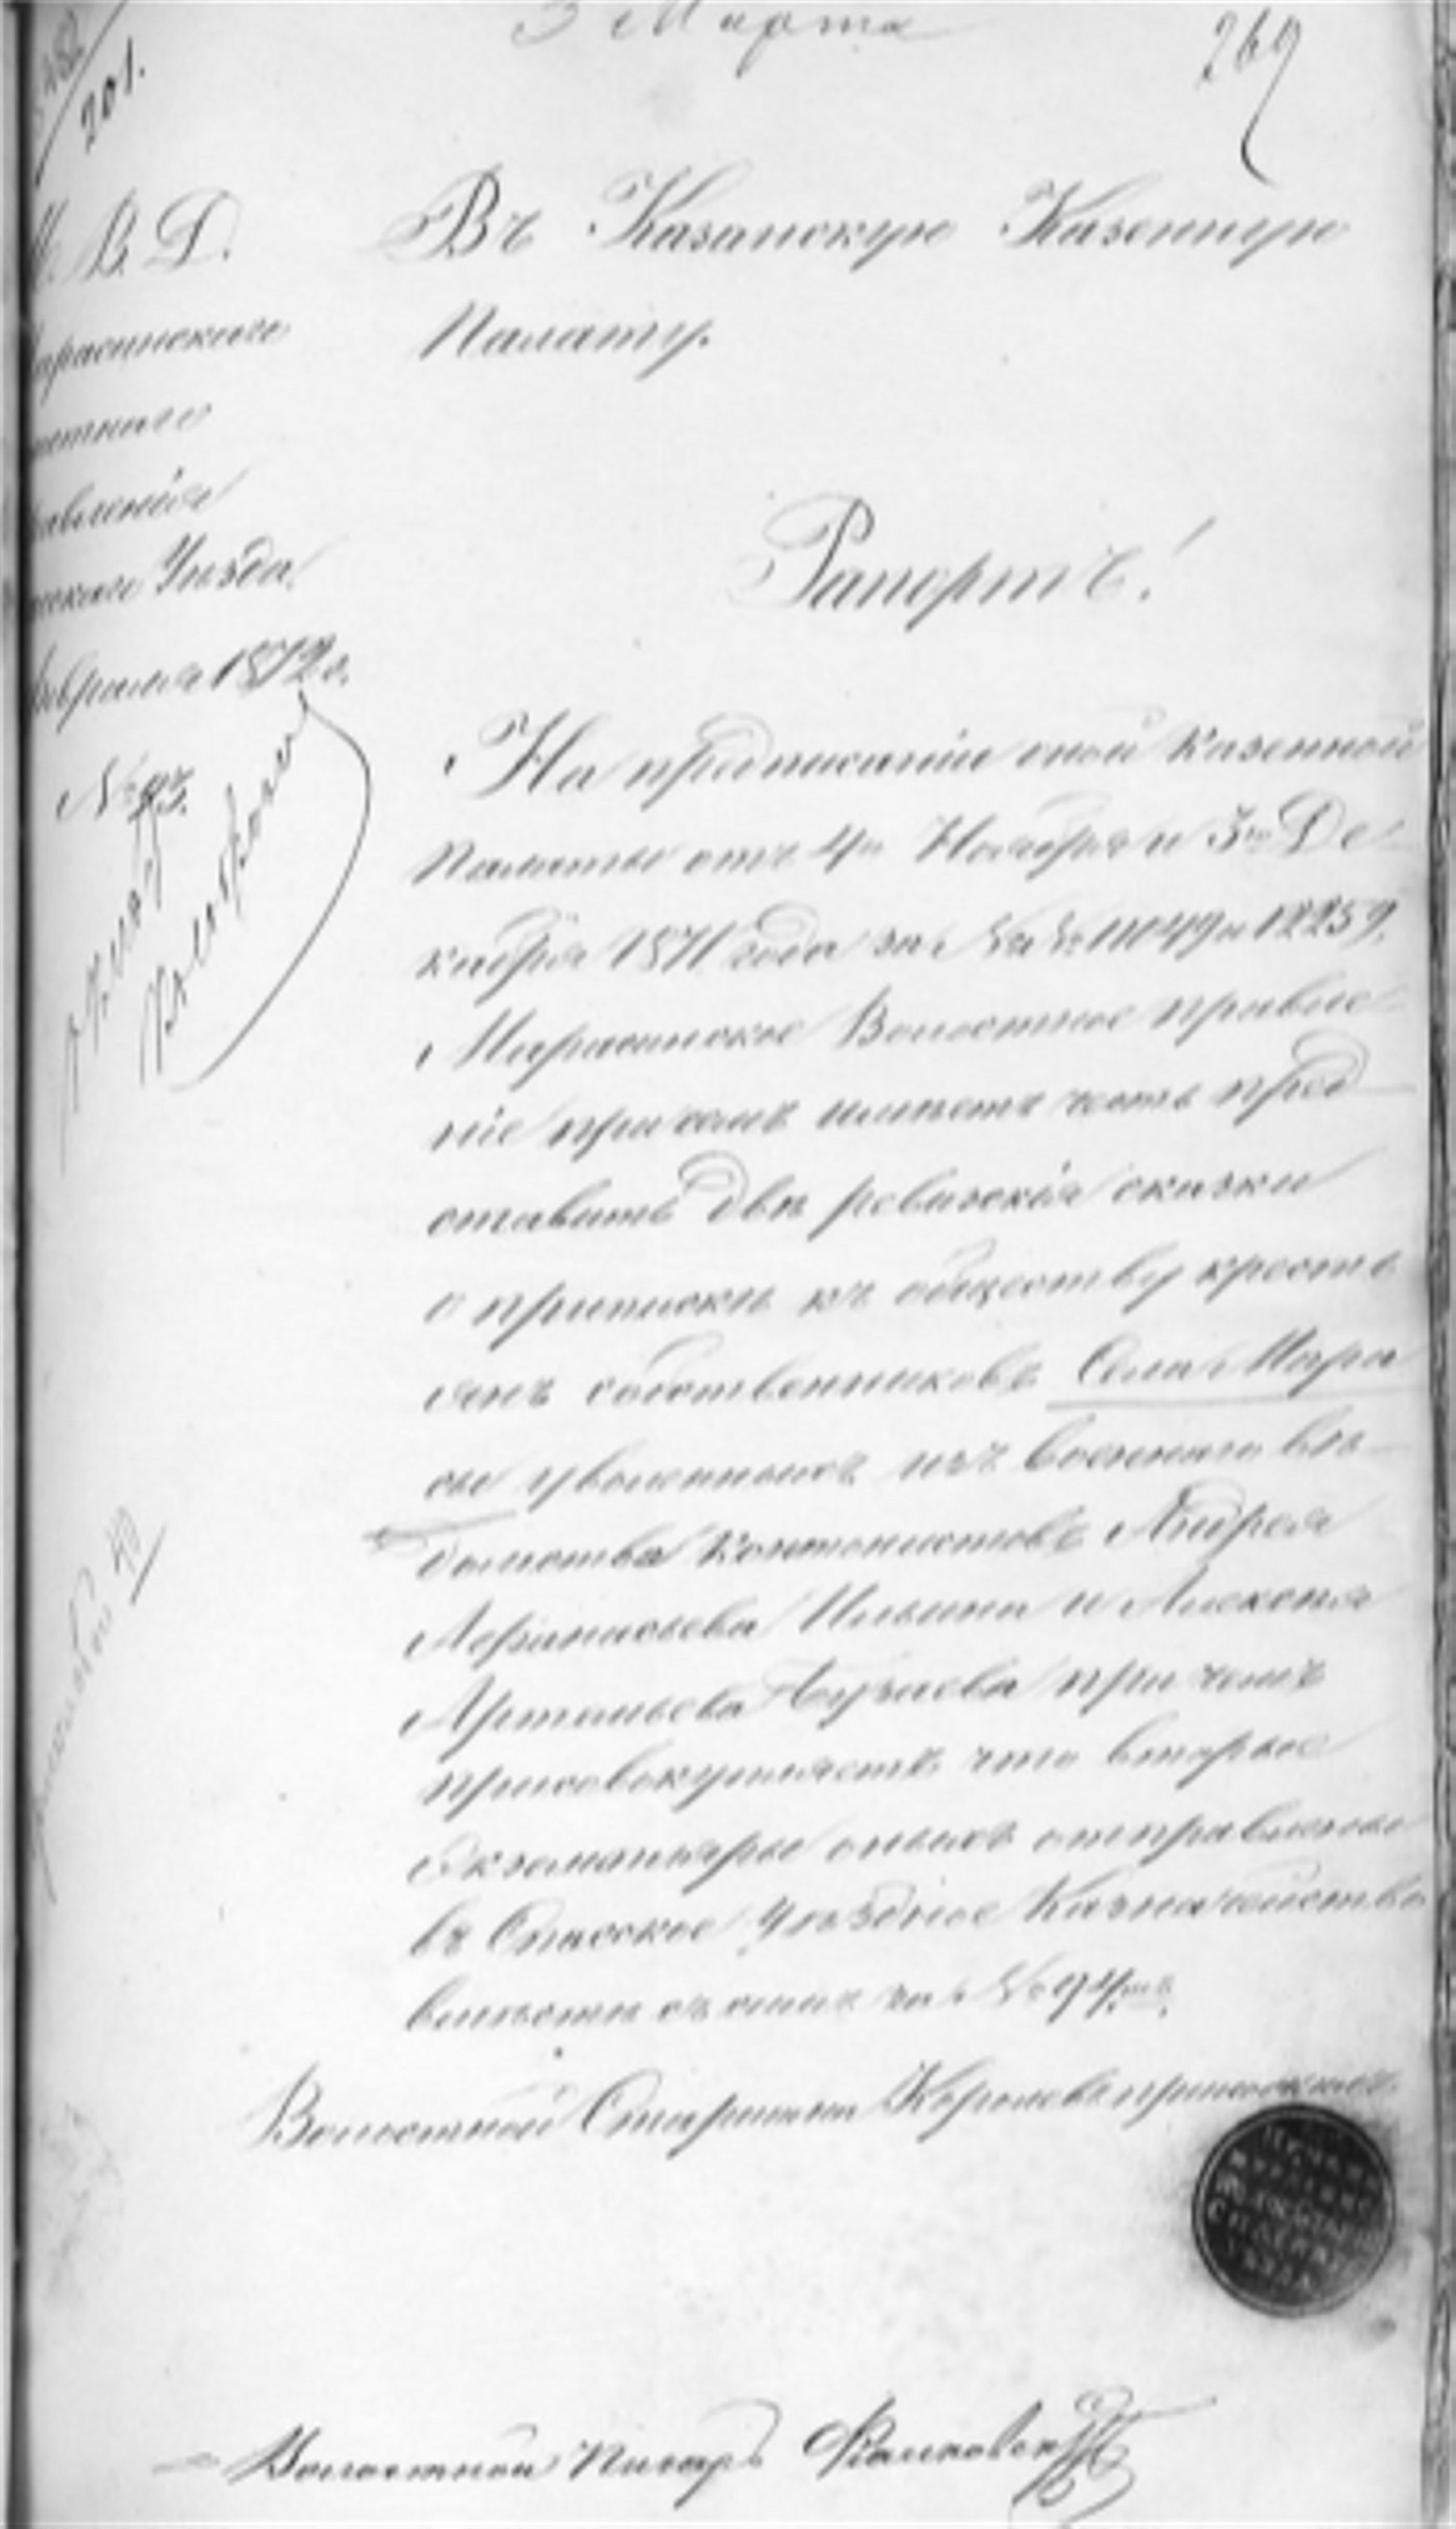 3 Марта
269
201.
М. В. Д.
арасинскаго
остнаго
авленія
скаго Уѣзда.
евраля 1872 г.
№ 93.
Въ Казанскую Казенную
Палату.
Рапортъ!
На предписаніи оной Казенной
Палаты отъ 4го Ноября и 3го Де
кабря 1871 года за №№ 11049 и 12259.
Марасинское Волостное правле
ніе при семъ имѣетъ честь пред
ставить двѣ ревизскія сказки
о приписки къ обществу кресть
янъ собственниковъ Села Мара
сы уволенныхъ изъ военнаго вѣ
домства кантонистовъ Андрея
Афанасьева Ильина и Алексѣя
Артемьева причемъ
присовокупляетъ что вторые
экземпляры оныхъ отправлены
въ Спасское Уѣздное Казначейство
вмѣсти съ симъ за № 94мъ.
Волостной Старшина Королевъ
Волостной Писарь